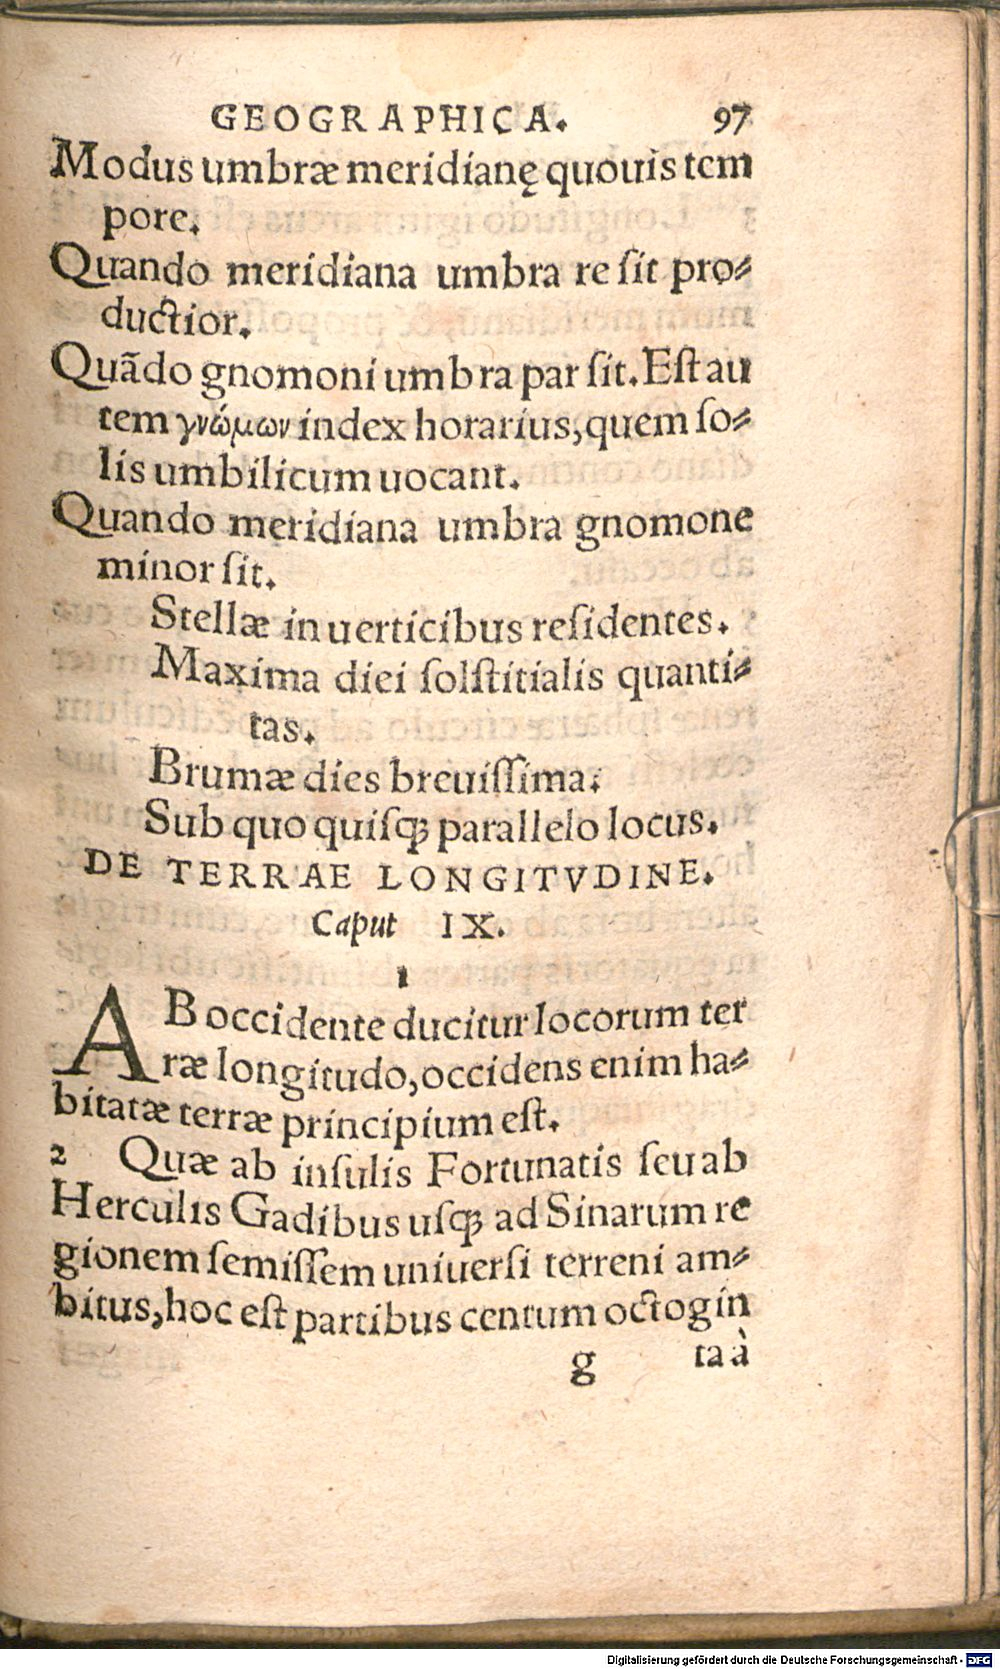 GEOGRAPHICA. 97
Modus umbræ meridianę quouis tem
pore.
Quando meridiana umbra re sit pro⸗
ductior.
Quãdo gnomoni umbra par sit. Est au
tem γνώμων index horarius, quem so⸗
lis umbilicum uocant.
Quando meridiana umbra gnomone
minor sit.
Stellæ in uerticibus residentes.
Maxima diei solstitialis quanti⸗
tas.
Brumæ dies breuissima.
Sub quo quisq; parallelo locus.
DE TERRAE LONGITVDINE.
Caput IX.
1
AB occidente ducitur locorum ter
ræ longitudo, occidens enim ha⸗
bitatæ terræ principium est.
2 Quæ ab insulis Fortunatis seu ab
Herculis Gadibus usq; ad Sinarum re
gionem semissem uniuersi terreni am⸗
bitus, hoc est partibus centum octogin
g ta à
Digitalisierung gefördert durch die Deutsche Forschungsgemeinschaft - DFG